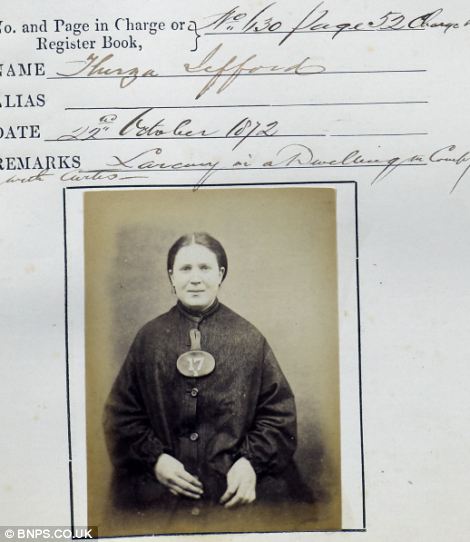 No. and Page in Charge or Register Book, } No 130 Page 52 Charge
NAME Thirza Jefford
ALIAS
DATE 22d October 1872
REMARKS Larceny in a Dwelling in Comp
with Curtis
17
© BNPS.CO.UK